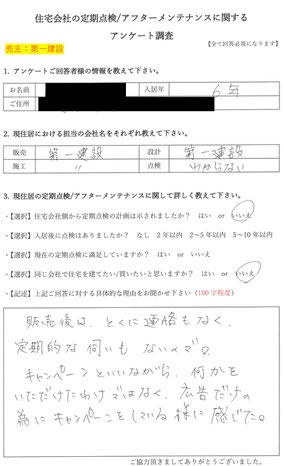 住宅会社の定期点検/アフターメンテナンスに関する
アンケート調査
【全て回答必須になります】
売主：第一建設
1. アンケートご回答者様の情報を教えて下さい。
お名前 入居年 6年
ご住所
2. 現住居における担当の会社名をそれぞれ教えて下さい。
販売 第一建設 設計 第一建設
施工 〃 点検 わからない
3. 現住居の定期点検/アフターメンテナンスに関して詳しく教えて下さい。
・【選択】住宅会社側から定期点検の計画は示されましたか？ はい or いいえ
・【選択】入居後に点検はありましたか？ なし 2年以内 2~5年以内 5~10年以内
・【選択】現在の定期点検に満足していますか？ はい or いいえ
・【選択】同じ会社で住宅を建てたい/買いたいと思いますか？ はい or いいえ
・【記述】上記ご回答に対する具体的な理由をお聞かせ下さい（100字程度）
販売後は、とくに連絡もなく、
定期的な伺いもないので。
キャンペーンといいながら、何かを
いただけたわけではなく、広告だけの
為にキャンペーンをしている様に感じた。
ご協力頂きましてありがとうございました。